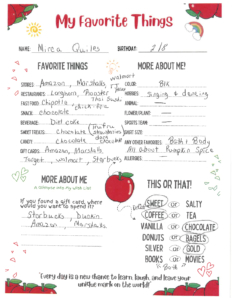 My Favorite Things
NAME: Mirca Quiles BIRTHDAY: 2/8
FAVORITE THINGS
MORE ABOUT ME!
STORES: Amazon, Marshalls, walmart
RESTAURANTS: Longhorn, Rooster
FAST FOOD: Chipotle
SNACK: chocolate
BEVERAGE: Diet coke
SWEET TREATS: Chocolate
CANDY: Chocolate
GIFT CARDS: Amazon, Marshalls
Target, walmart, Starbucks
COLOR:
HOBBIES: Singing & dancing
ANIMAL:
FLOWER/PLANT:
SPORTS TEAM:
SHIRT SIZE:
ANY OTHER FAVORITES: Bath & Body
Pumpkin Spice
ALLERGIES:
MORE ABOUT ME
If you found a gift card, where
would you want to spend it?
Starbucks, Dunkin
Amazon, Marshalls
THIS OR THAT!
SWEET or SALTY
COFFEE or TEA
VANILLA or CHOCOLATE
DONUTS or BAGELS
SILVER or GOLD
BOOKS or MOVIES
Both
"Every day is a new chance to learn, laugh, and leave your
unique mark on the world!"